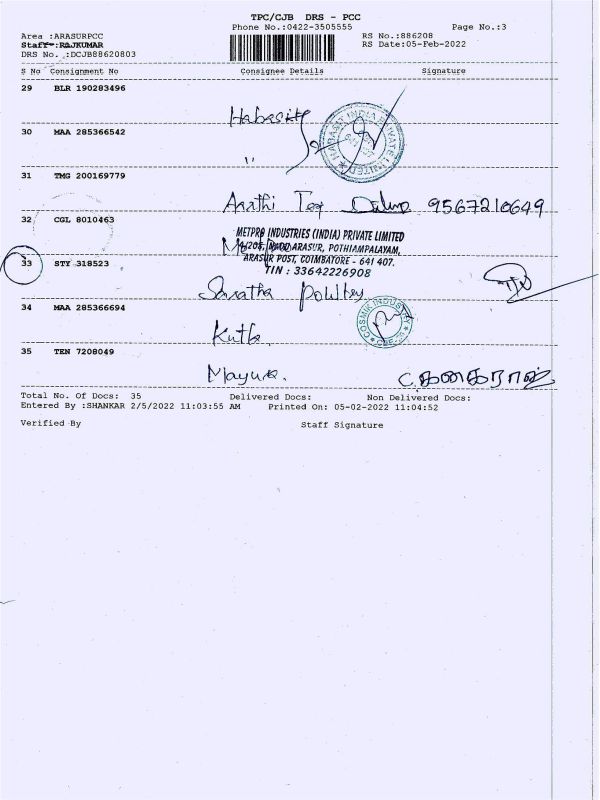 TPC/CJB DRS - PCC
Phone No.:0422-3505555 Page No.:3
Area :ARASURPCC RS No.:886208
Staff :RAJKUMAR RS Date:05-Feb-2022
DRS No. :DCJB88620803
S No Consignment No Consignee Details Signature
29 BLR 190283496
Habasit
HABASIT INDIA PRIVATE LIMITED
30 MAA 285366542
"
31 TMG 200169779
Aarthi Tex 9567210649
32 CGL 8010463
METPRO INDUSTRIES (INDIA) PRIVATE LIMITED
4/205, NADU ARASUR, POTHIAMPALAYAM,
ARASUR POST, COIMBATORE - 641 407.
TIN : 33642226908
33 STY 318523
Saratha
34 MAA 285366694
COSMIK INDUSTRY
35 TEN 7208049
Mayura.
Total No. Of Docs: 35 Delivered Docs: Non Delivered Docs:
Entered By :SHANKAR 2/5/2022 11:03:55 AM Printed On: 05-02-2022 11:04:52
Verified By Staff Signature